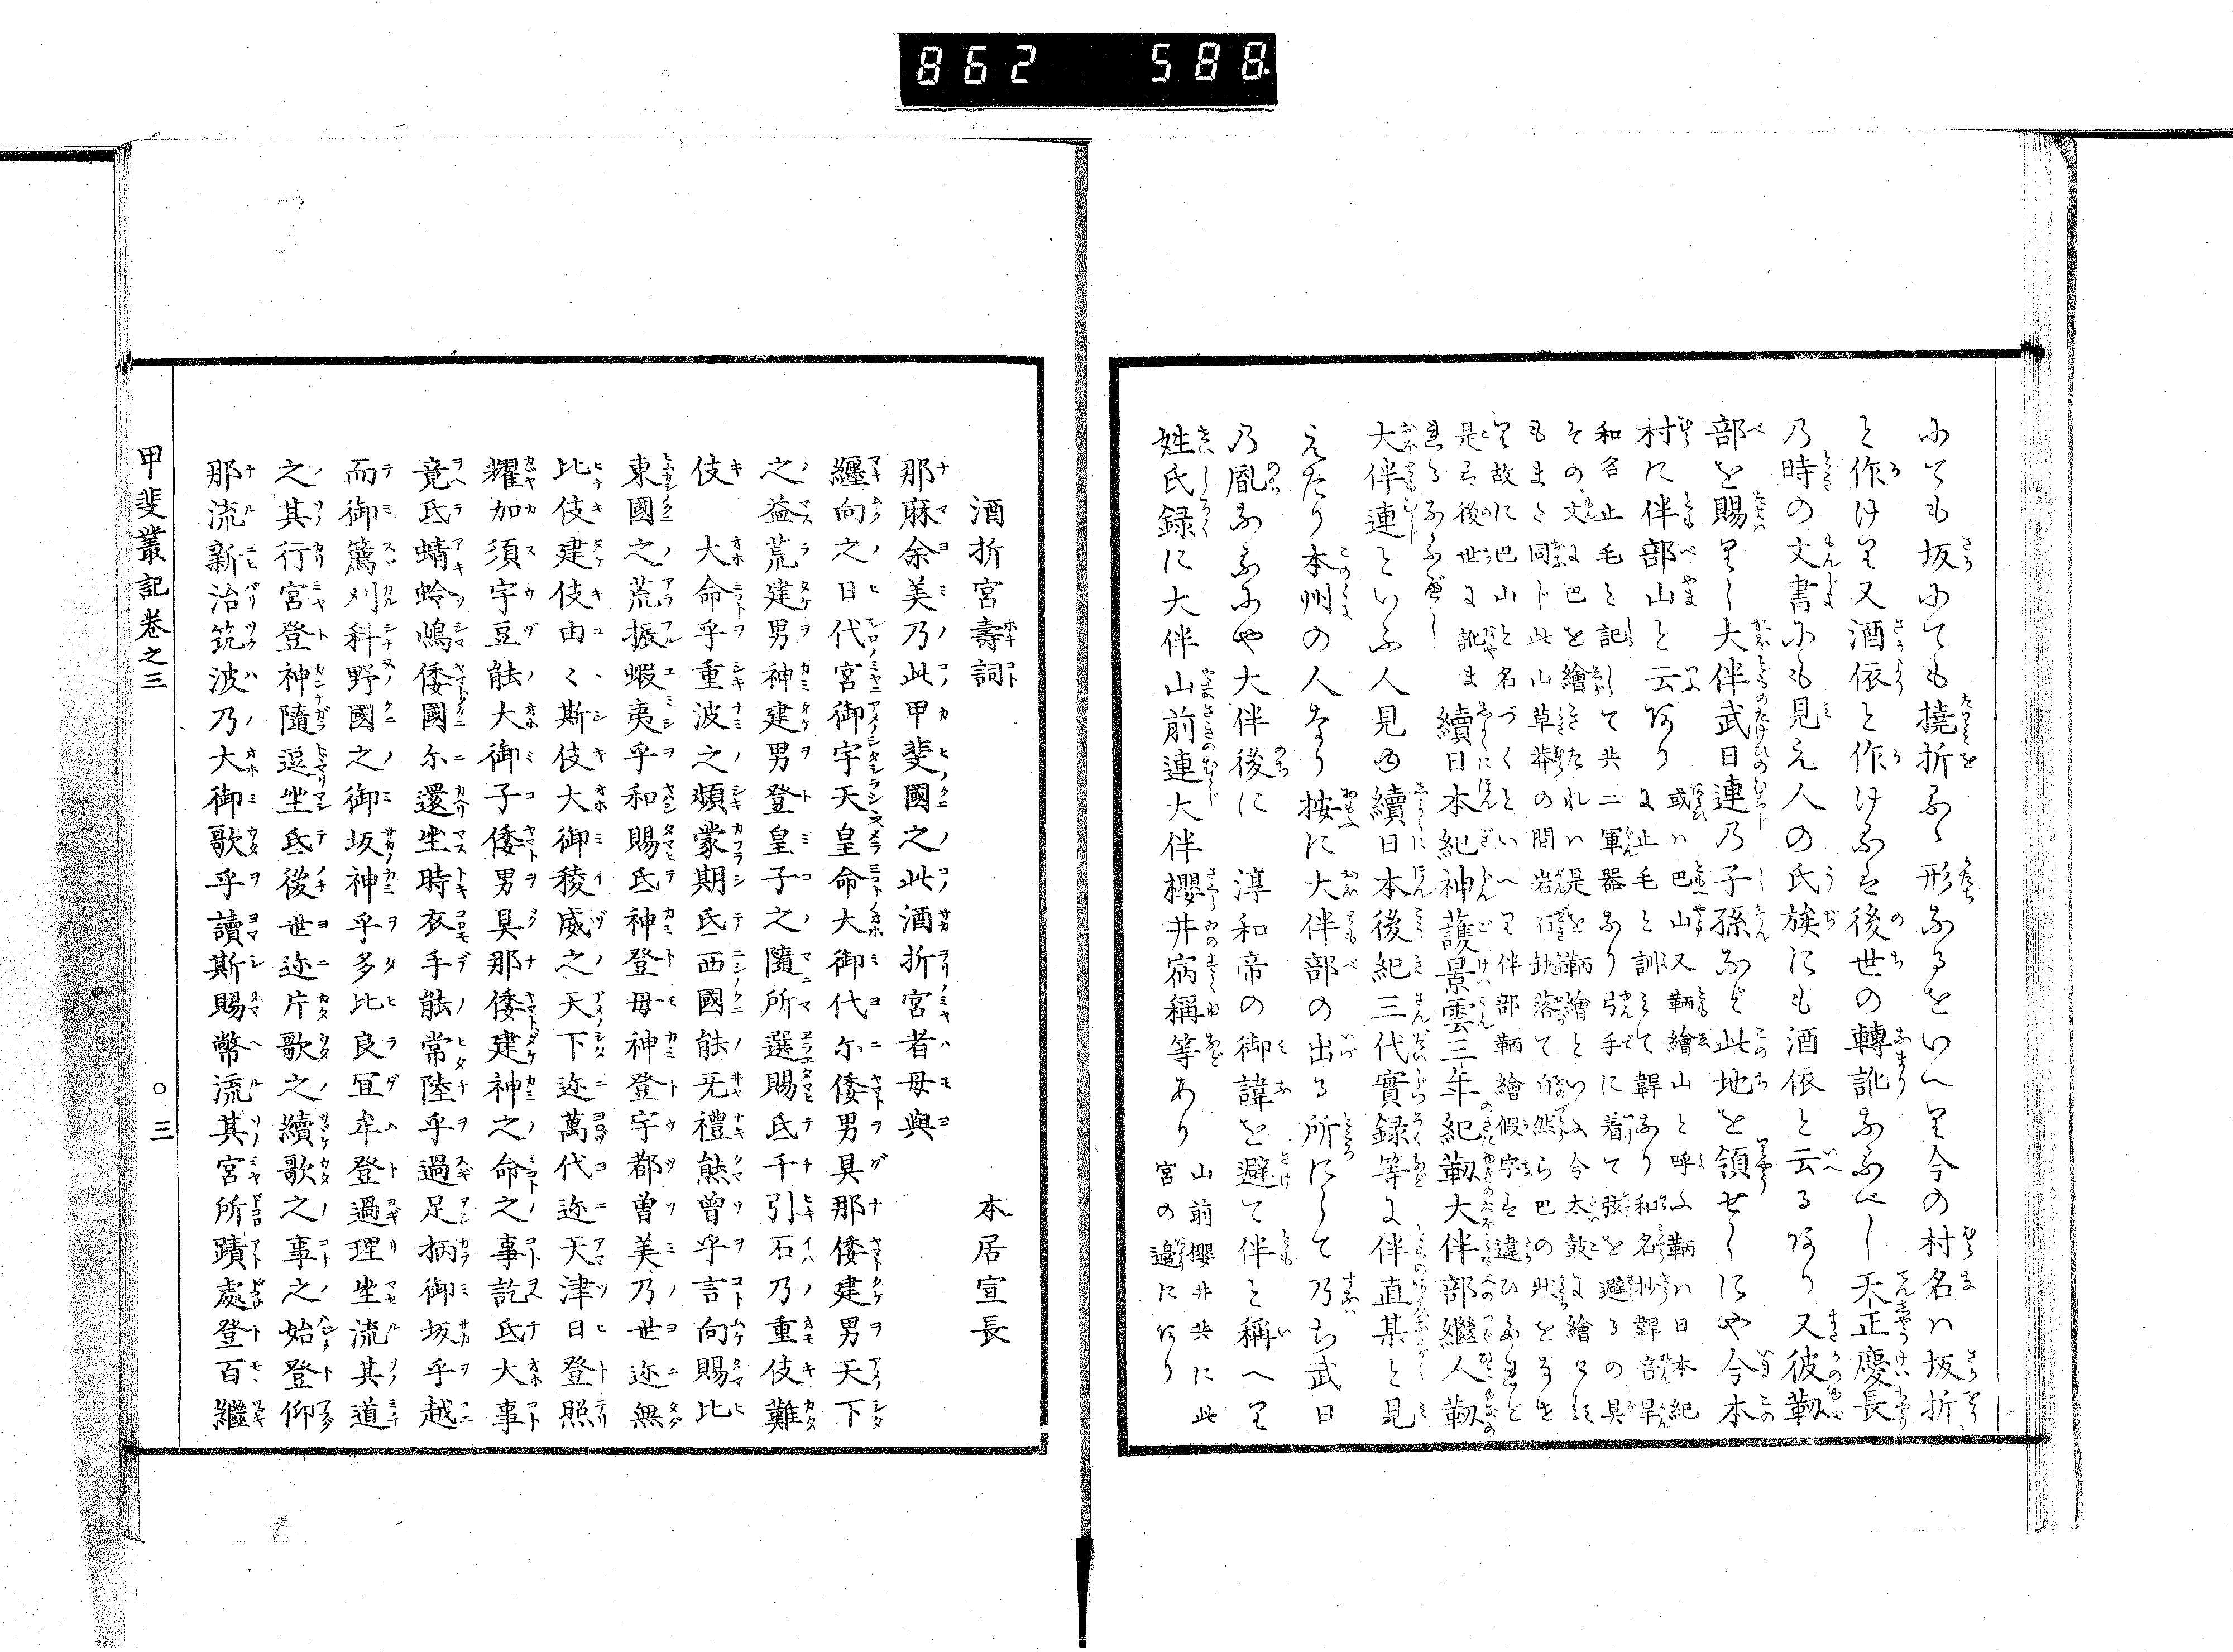 862 588
にても坂にても撓折なる形なるをいへり今の村名ハ坂折
と作けり又酒依と作けるは後世の轉訛なるべし天正慶長
乃時の文書にも見え人の氏族にも酒依と云るあり又彼靭
部を賜りし大伴武日連乃子孫など此地を領せしにや今本
村に伴部山と云あり
或ハ巴山又鞆繪山と呼ふ鞆ハ日本紀
に止毛と訓して鞆あり和名抄
和名止毛と記して共二軍器なり弓手に着て弦を避るの具
その文に巴を繪きたれハ是を鞆繪といふ今太鼓に繪
もまた同ト此山草莽の間岩石缺落て自然ら巴の状を
り故に巴山と名づくといへり伴部鞆繪假字は違ひあれど
是は後世に訛ま
續日本紀神護景雲三年紀靭大伴部繼人靭
大伴連といふ人見ゆ續日本後紀三代實録等に伴直某と見
えたり本州の人なり按に大伴部の出る所にして乃ち武日
乃胤なるにや大伴後に 淳和帝の御諱を避て伴と稱へり
姓氏録に大伴山前連大伴櫻井宿稱等あり
山前櫻井共に此
宮の邉にあり
酒折宮壽詞
本居宣長
那麻余美乃此甲斐國之此酒折宮者母與
纏向之日代宮御宇天皇命大御代尓倭男具那倭建男天下
之益荒建男神建男登皇子之隨所選賜氐千引石乃重伎難
伎 大命乎重波之頻蒙期氐西國能旡禮熊曾乎言向賜比
東國之荒振蝦夷乎和賜氐神登母神登宇都曽美乃世迩無
比伎建伎由〻斯伎大御稜威之天下迩萬代迩天津日登照
耀加須宇豆能大御子倭男具那倭建神之命之事訖氐大事
竟氐蜻蛉嶋倭國尓還坐時衣手能常陸乎過足柄御坂乎越
而御篶刈科野國之御坂神乎多比良冝牟登過理坐流其道
之其行宮登神隨逗坐氐後世迩片歌之續歌之事之始登仰
那流新治筑波乃大御歌乎讀斯賜幣流其宮所蹟處登百繼
甲斐叢記卷之三
○三